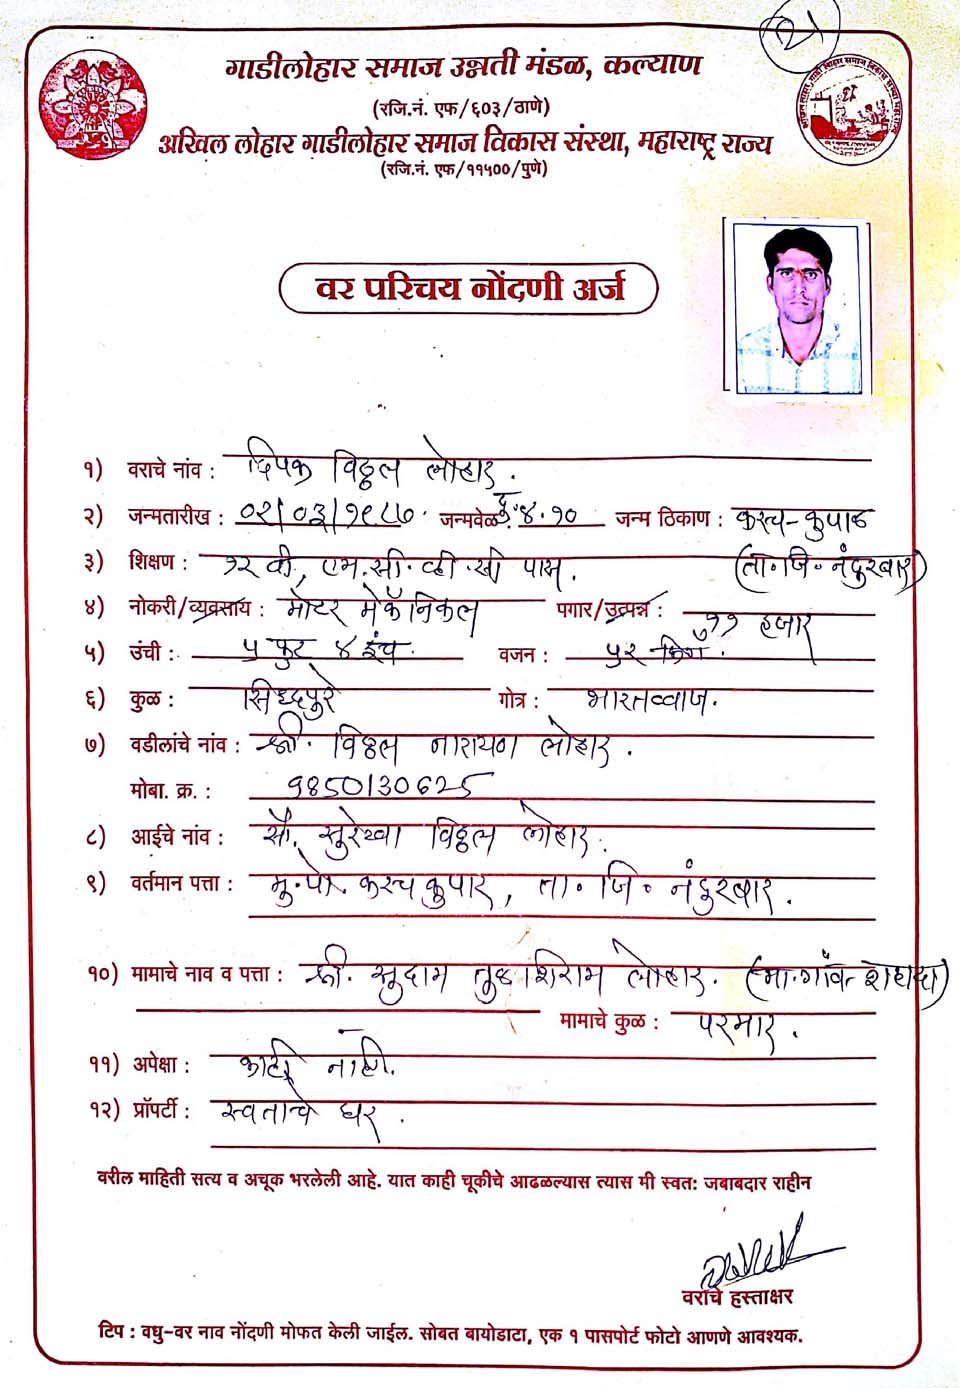 २१
गाडीलोहार समाज उन्नती मंडळ, कल्याण
(रजि.नं. एफ/६०३/ठाणे)
अखिल लोहार गाडीलोहार समाज विकास संस्था, महाराष्ट्र राज्य
(रजि.नं. एफ/११५००/पुणे)
वर परिचय नोंदणी अर्ज
१) वराचे नांव : दिपक विठ्ठल लोहार.
२) जन्मतारीख : ०२/०३/१९८७ जन्मवेळ : दु. ४.१० जन्म ठिकाण :
३) शिक्षण : १२ वी, एम.सी.व्ही.सी पास. (ता.जि.नंदुरबार)
४) नोकरी/व्यवसाय : मोटर मेकॅनिकल पगार/उत्पन्न : ११ हजार
५) उंची : ५ फुट ४ इंच वजन : ५२ किग्रॅ.
६) कुळ : सिध्दपुरे गोत्र : भारतव्दाज.
७) वडीलांचे नांव : श्री. विठ्ठल नारायण लोहार.
मोबा. क्र. : 9850130625
८) आईचे नांव : सौ. सुरेखा विठ्ठल लोहार.
९) वर्तमान पत्ता : मु.पो. ता.जि. नंदुरबार.
१०) मामाचे नाव व पत्ता : श्री. सुदाम तुळशिराम लोहार. (मा.गांव- शहादा)
मामाचे कुळ : परमार.
११) अपेक्षा : काही नाही.
१२) प्रॉपर्टी : स्वताचे घर.
वरील माहिती सत्य व अचूक भरलेली आहे. यात काही चूकीचे आढळल्यास त्यास मी स्वतः जबाबदार राहीन
वराचे हस्ताक्षर
टिप : वधु-वर नाव नोंदणी मोफत केली जाईल. सोबत बायोडाटा, एक १ पासपोर्ट फोटो आणणे आवश्यक.